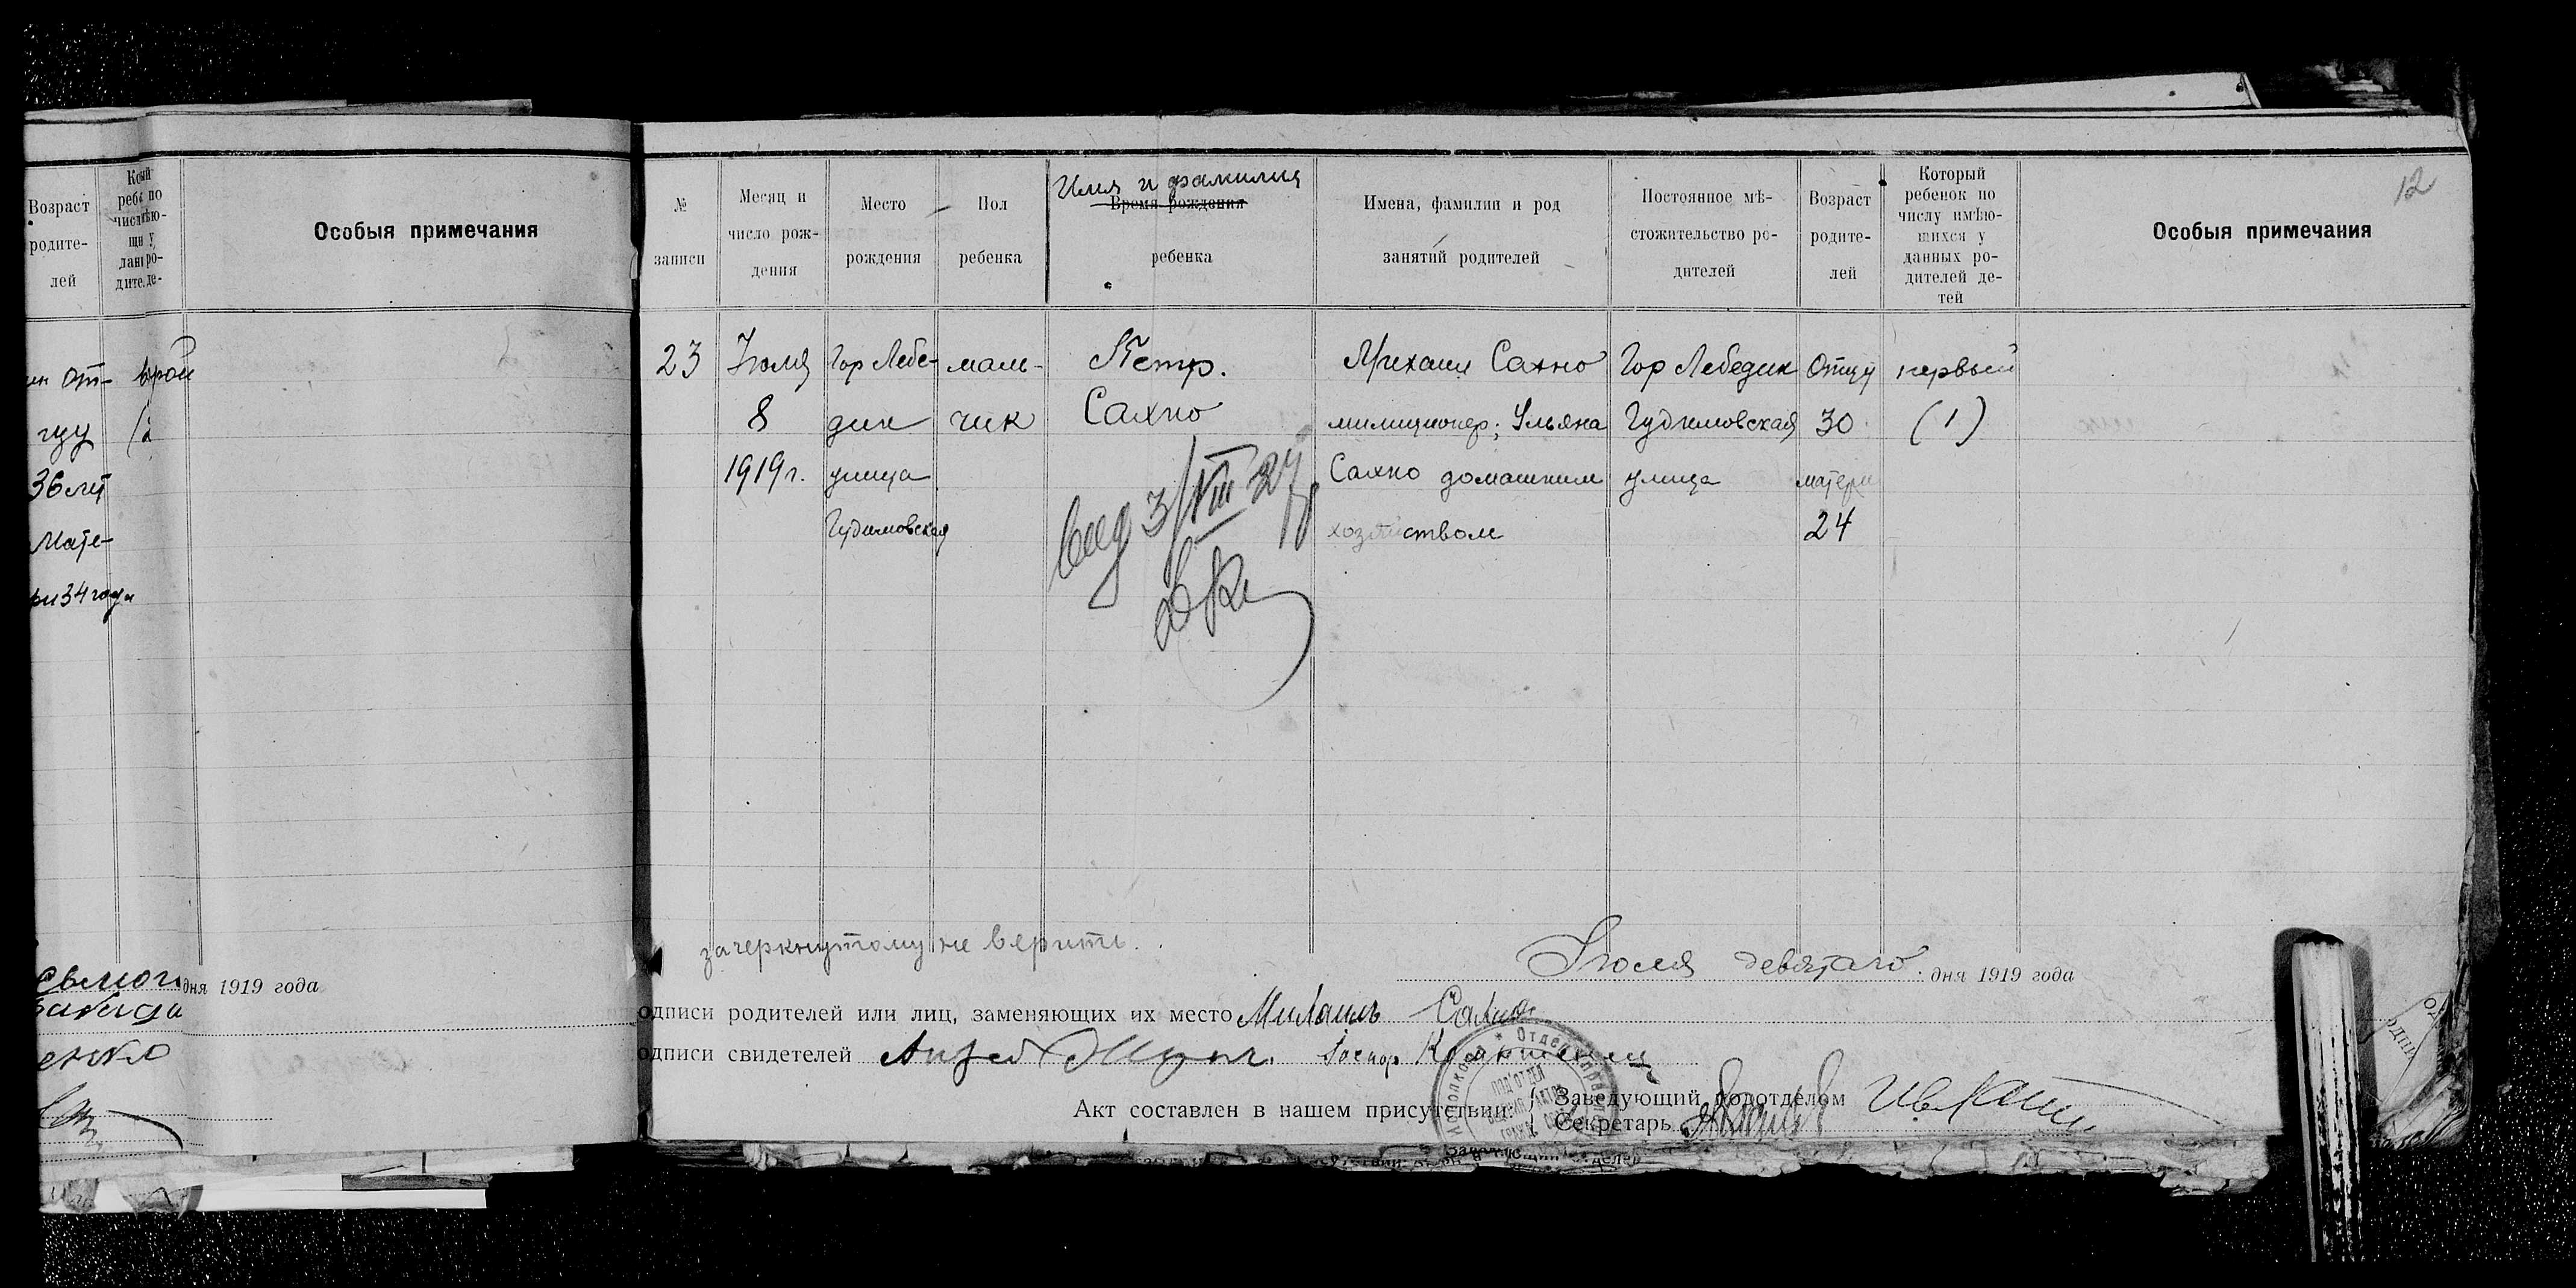 Возраст
родите-
лей
Особыя примечания
36 лт
Мате-
ри 34 года
дня 1919 года
12
№
записи
Месяц и
число рож-
дения
Место
рождения
Пол
ребенка
Имя и фамилия
Время рождения
ребенка
Имена, фамилии и род
занятий родителей
Постоянное мѣ-
стожительство ро-
дителей
Возраст
родите-
лей
Который
ребенок по
числу имѣю-
щихся у
данных ро-
дителей де-
тей
Особыя примечания
23
Июля
8
1919 г.
Гор Лебе-
дин
улица
Гудимовская
маль-
чик
Петр.
Сахно
Михаил Сахно
милиционер; Ульяна
Сахно домашним
хозяйством
Гор Лебедин
Гудимовская
улица
Отцу
30
матери
24
первый
(1)
зачеркнутому не верить.
Июля девятаго дня 1919 года
одписи родителей или лиц, заменяющих их место Михаилъ Сахно
одписи свидетелей
Акт составлен в нашем присутствии:
Заведующий подотделом
Секретарь